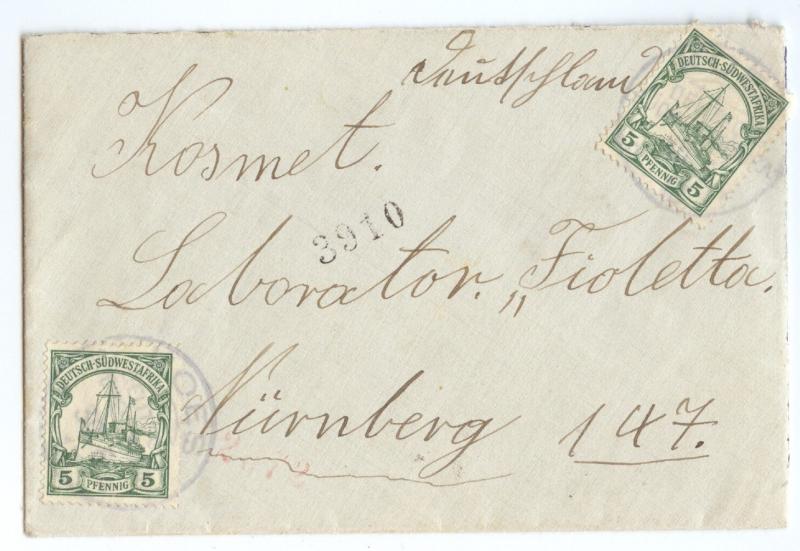 Deutschland
DEUTSCH-SÜDWESTAFRIKA
5 PFENNIG 5
Kosmet.
3910
Laborator. „Fioletta.
DEUTSCH-SÜDWESTAFRIKA
5 PFENNIG 5
Nürnberg 147.